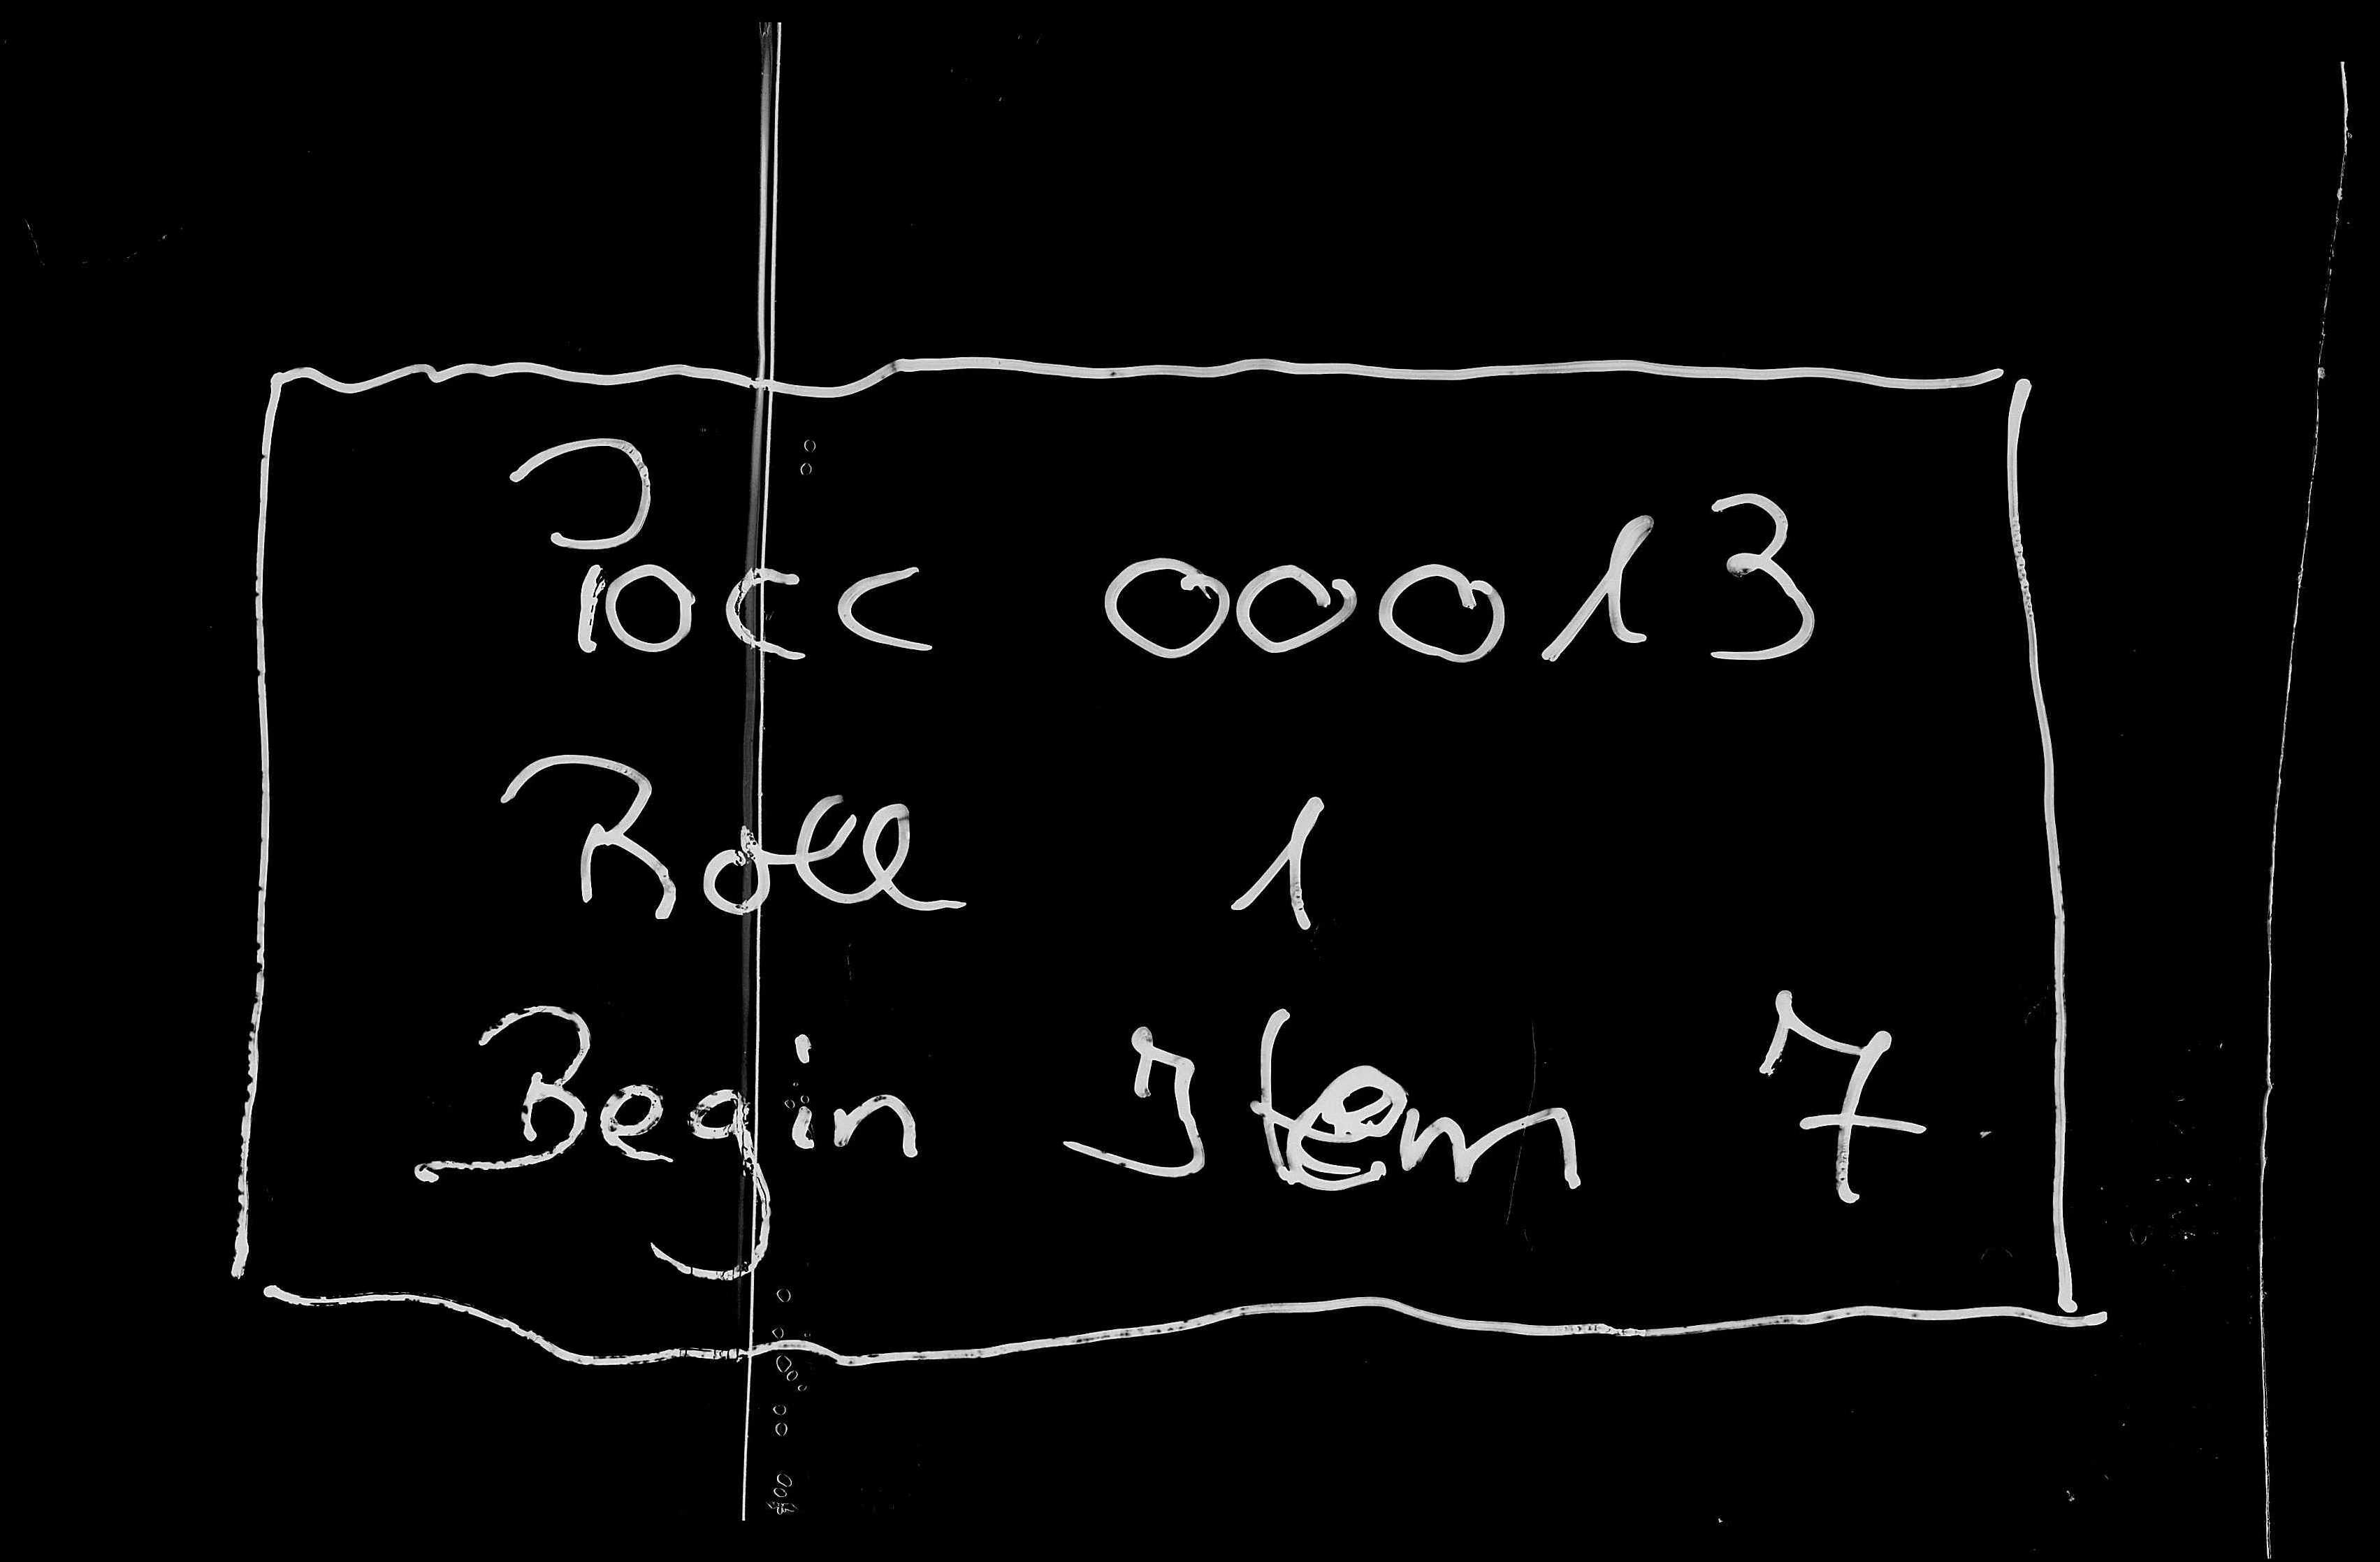 Pocc 00013
Roll 1
Begin Item 7